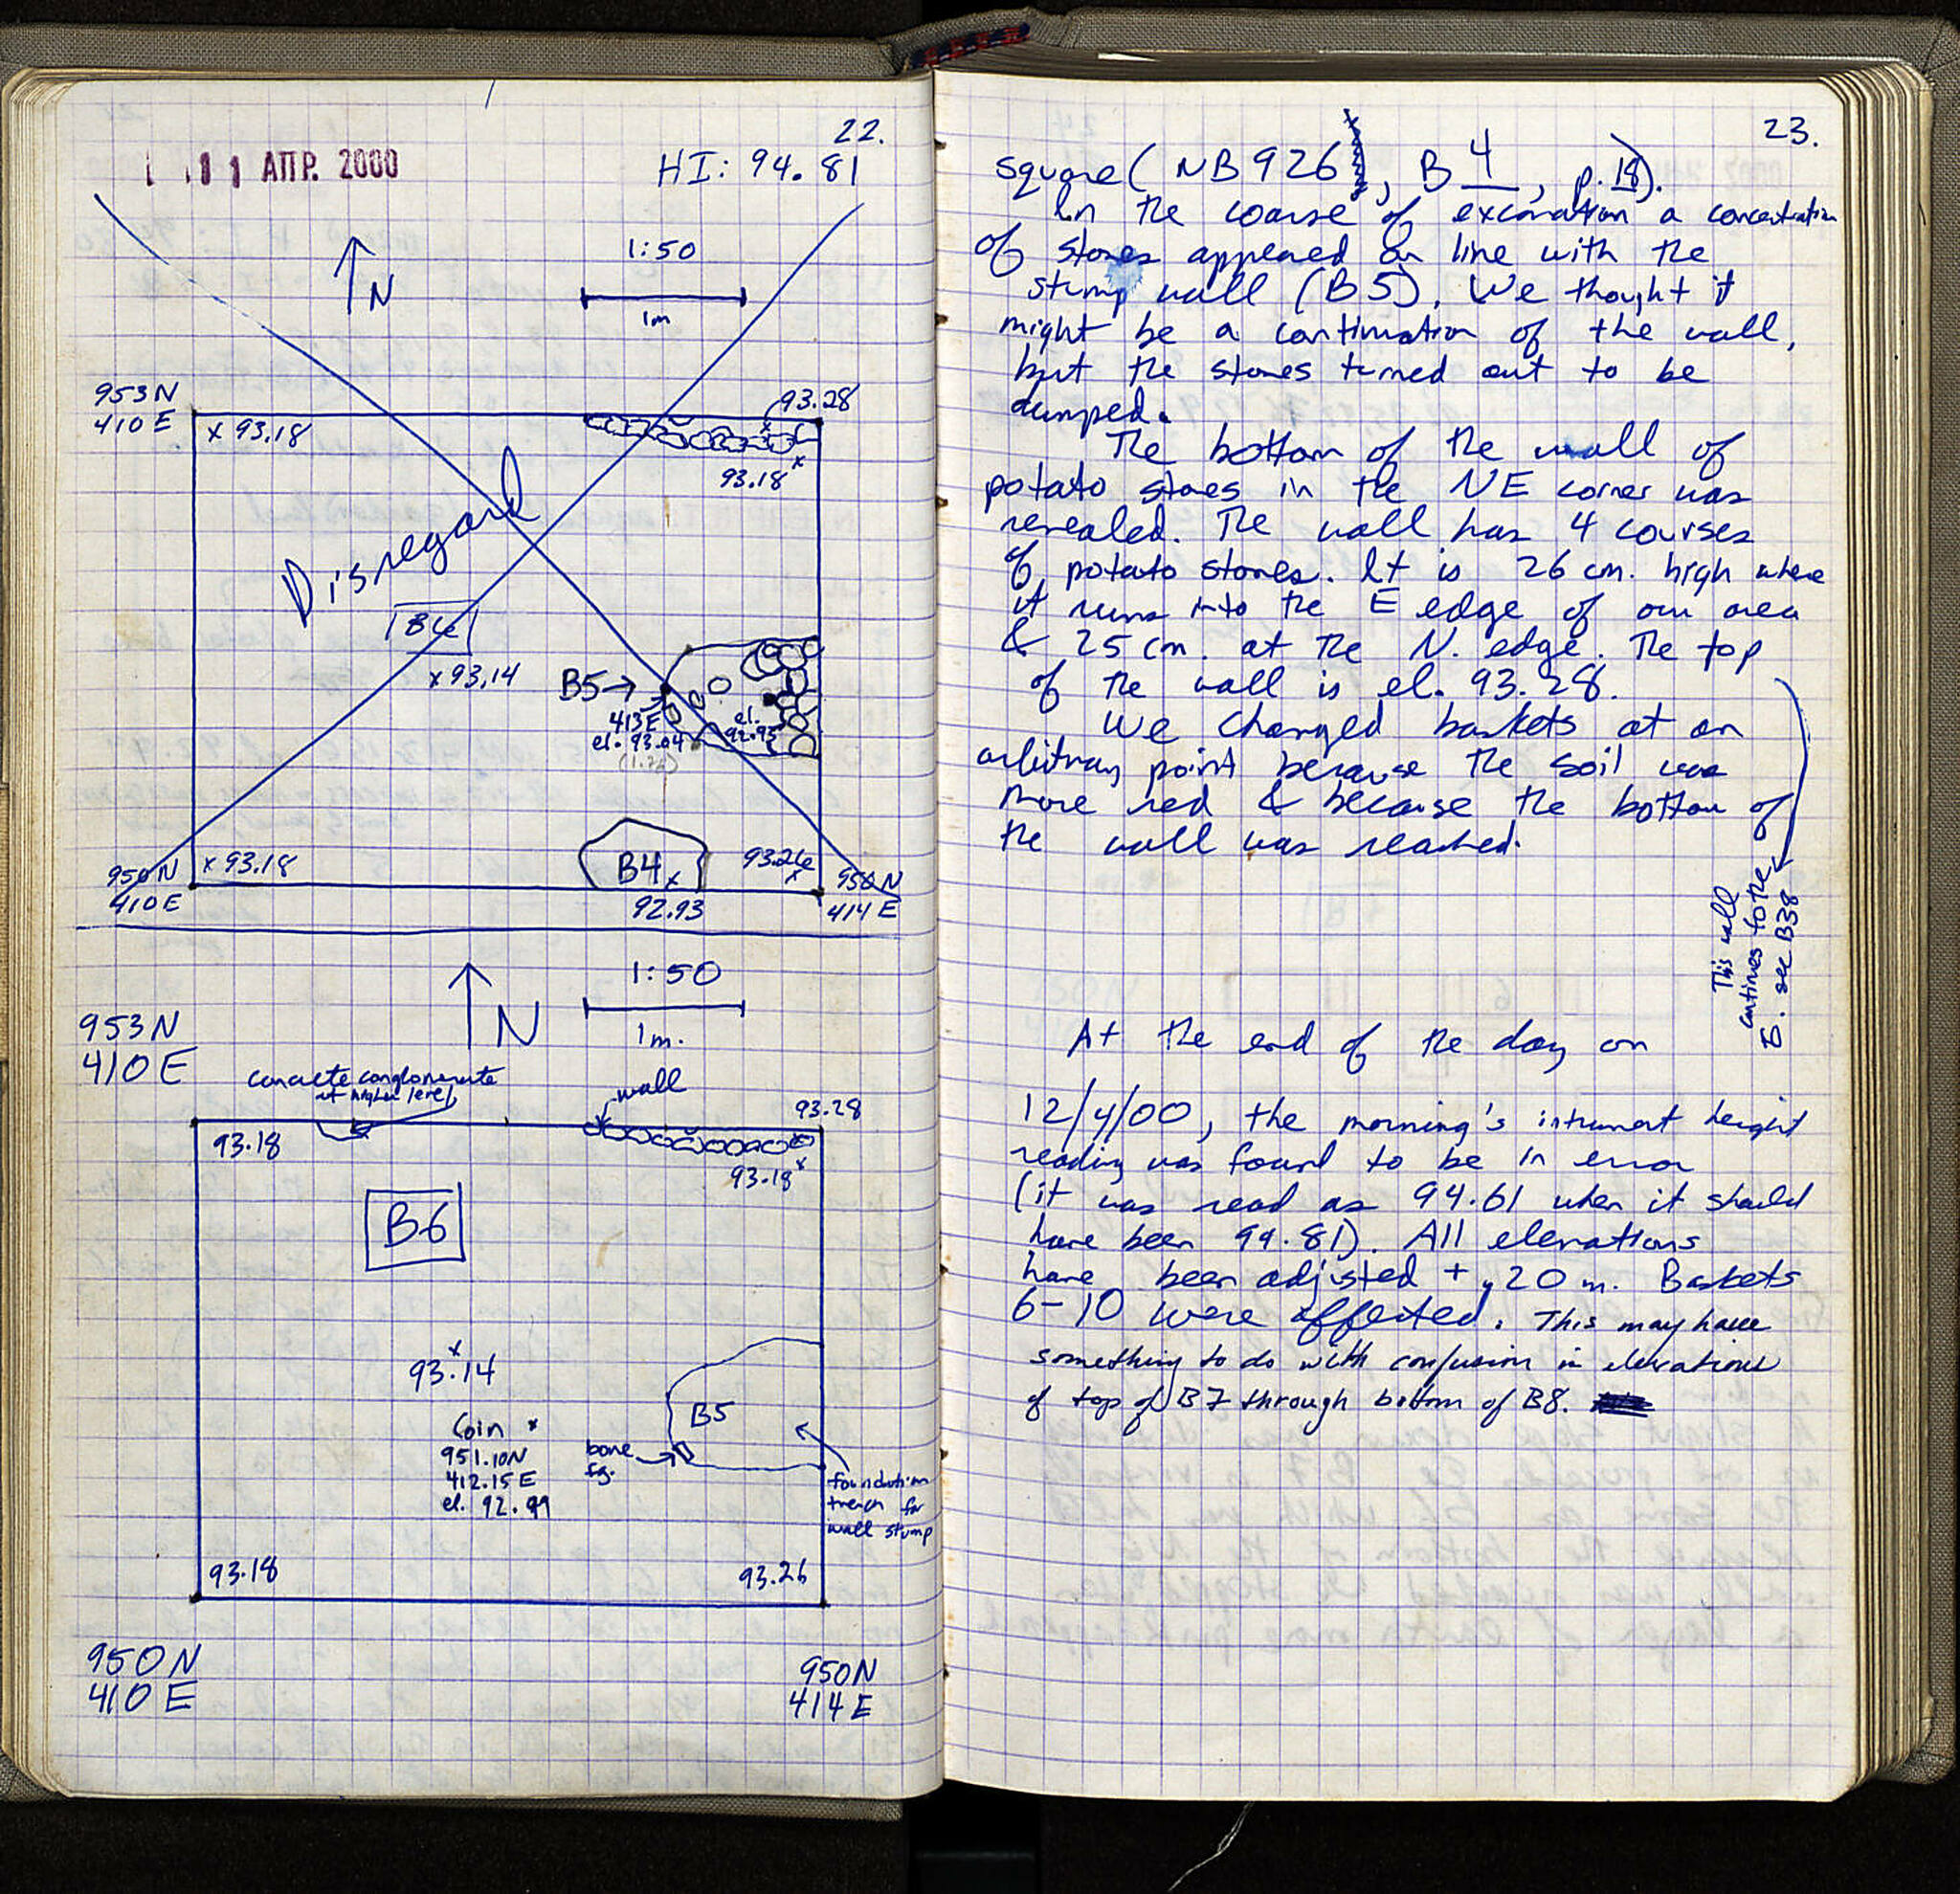 22.
11 ΑΠΡ. 2000
HI: 94.81
1:50
N
1m
953N
410E
x 93.18
93.28
93.18 x
Disregard
B6
x 93.14
B5→
413E
el. 93.04
el.
92.93
950N
410E
x 93.18
B4 x
92.93
93.26
x
950N
414E
1:50
N
1m.
953N
410E
concrete conglomerate
at higher level
wall
93.28
93.18
93.18 x
B6
x
93.14
Coin x
951.10N
412.15E
el. 92.99
B5
bone
fg.
foundation
trench for
wall stump
93.18
93.26
950N
410E
950N
414E
23.
square (NB926, B4, p. 18).
In the coarse of excavation a concentration
of stones appeared on line with the
stump wall (B5). We thought it
might be a continuation of the wall,
but the stones turned out to be
dumped.
The bottom of the wall of
potato stones in the NE corner was
revealed. The wall has 4 courses
of potato stones. It is 26 cm. high where
it runs into the E edge of our area
& 25 cm. at the N. edge. The top
of the wall is el. 93.28.
We changed baskets at an
arbitrary point because the soil was
more red & because the bottom of
the wall was reached.
This wall
continues to the
E. see B38
At the end of the day on
12/4/00, the morning's intrument height
reading was found to be in error
(it was read as 94.61 when it should
have been 94.81). All elevations
have been adjusted +.20 m. Baskets
6-10 were affected. This may have
something to do with confusion in elevations
of top of B7 through bottom of B8.